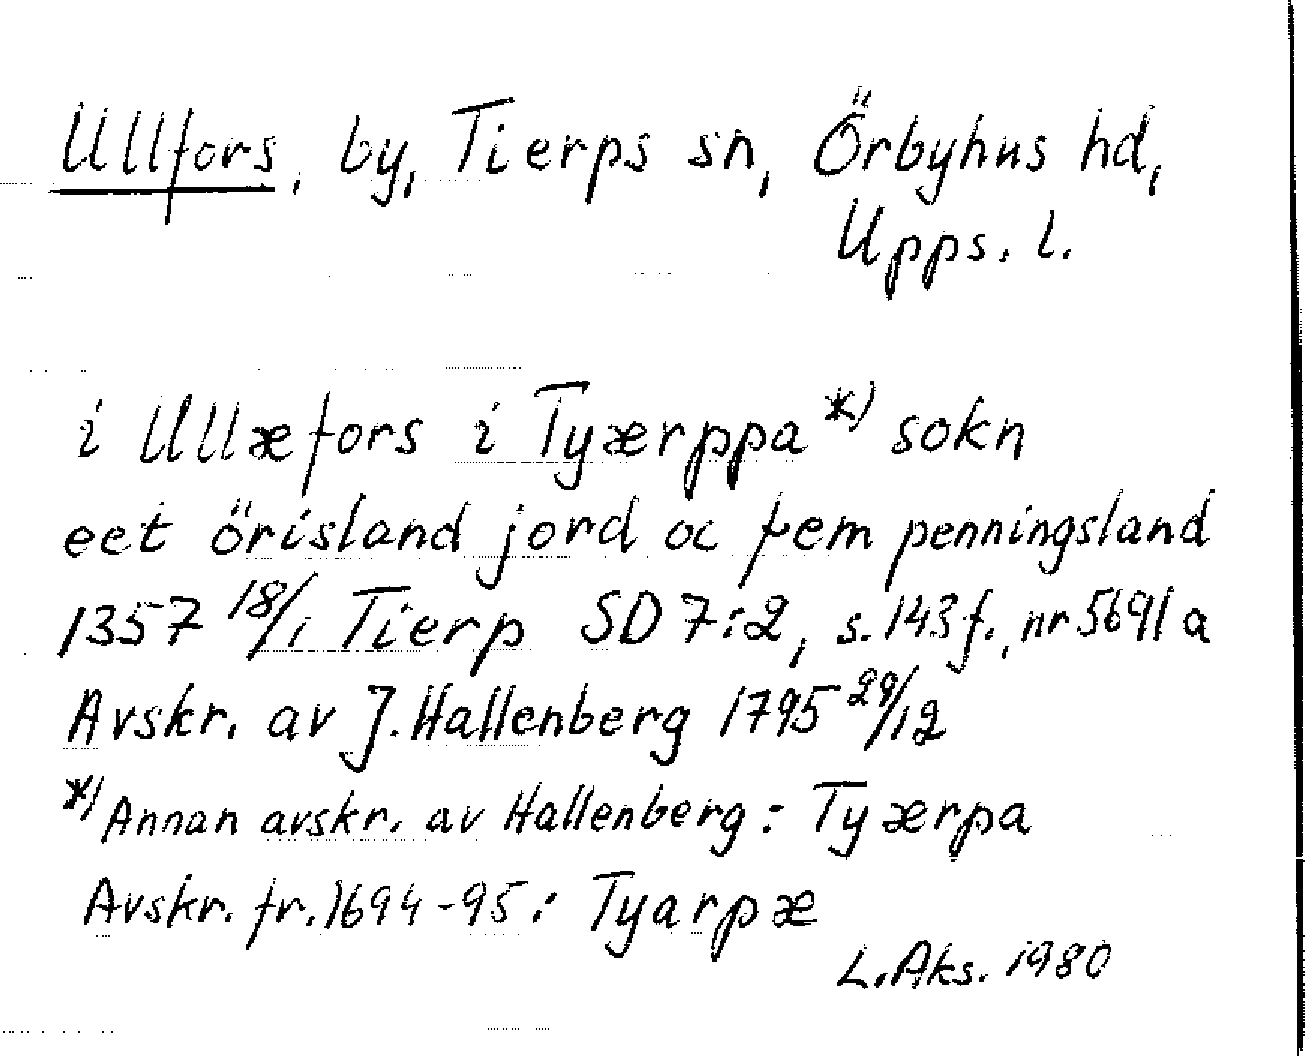 Ullfors, by, Tierps sn, Örbyhus hd,
Upps. l.
i Ullæfors i Tyærppa *) sokn
eet örisland jord oc fem penningsland
1357 18/1 Tierp SD 7:2, s. 143 f., nr 5691 a
Avskr. av J. Hallenberg 1795 29/12
*) Annan avskr. av Hallenberg: Tyærpa
Avskr. fr. 1694-95: Tyarpæ
L. Aks. 1980